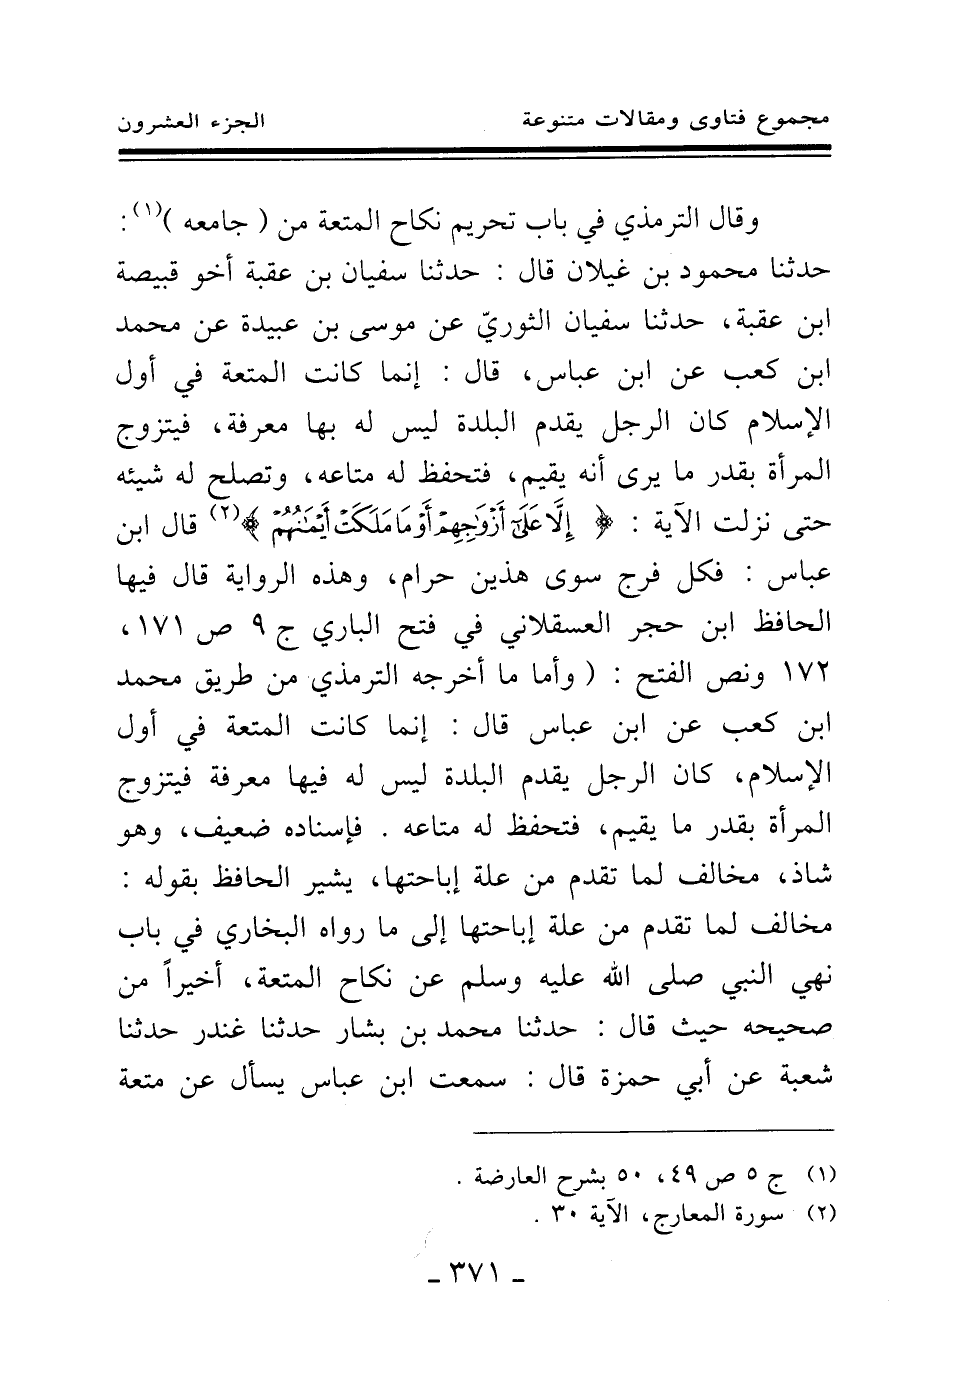 مجموع فتاوى ومقالات متنوعة الجزء العشرون
وقال الترمذي في باب تحريم نكاح المتعة من ( جامعه )(١) :
حدثنا محمود بن غيلان قال : حدثنا سفيان بن عقبة أخو قبيصة
ابن عقبة، حدثنا سفيان الثوريّ عن موسى بن عبيدة عن محمد
ابن كعب عن ابن عباس، قال : إنما كانت المتعة في أول
الإسلام كان الرجل يقدم البلدة ليس له بها معرفة، فيتزوج
المرأة بقدر ما يرى أنه يقيم، فتحفظ له متاعه، وتصلح له شيئه
حتى نزلت الآية : ﴿ إِلَّا عَلَىٰٓ أَزْوَٰجِهِمْ أَوْ مَا مَلَكَتْ أَيْمَـٰنُهُمْ ﴾(٢) قال ابن
عباس : فكل فرج سوى هذين حرام، وهذه الرواية قال فيها
الحافظ ابن حجر العسقلاني في فتح الباري ج ٩ ص ١٧١،
١٧٢ ونص الفتح : ( وأما ما أخرجه الترمذي من طريق محمد
ابن كعب عن ابن عباس قال : إنما كانت المتعة في أول
الإسلام، كان الرجل يقدم البلدة ليس له فيها معرفة فيتزوج
المرأة بقدر ما يقيم، فتحفظ له متاعه . فإسناده ضعيف، وهو
شاذ، مخالف لما تقدم من علة إباحتها، يشير الحافظ بقوله :
مخالف لما تقدم من علة إباحتها إلى ما رواه البخاري في باب
نهي النبي صلى الله عليه وسلم عن نكاح المتعة، أخيراً من
صحيحه حيث قال : حدثنا محمد بن بشار حدثنا غندر حدثنا
شعبة عن أبي حمزة قال : سمعت ابن عباس يسأل عن متعة
(١) ج ٥ ص ٤٩، ٥٠ بشرح العارضة .
(٢) سورة المعارج، الآية ٣٠ .
- ٣٧١ -